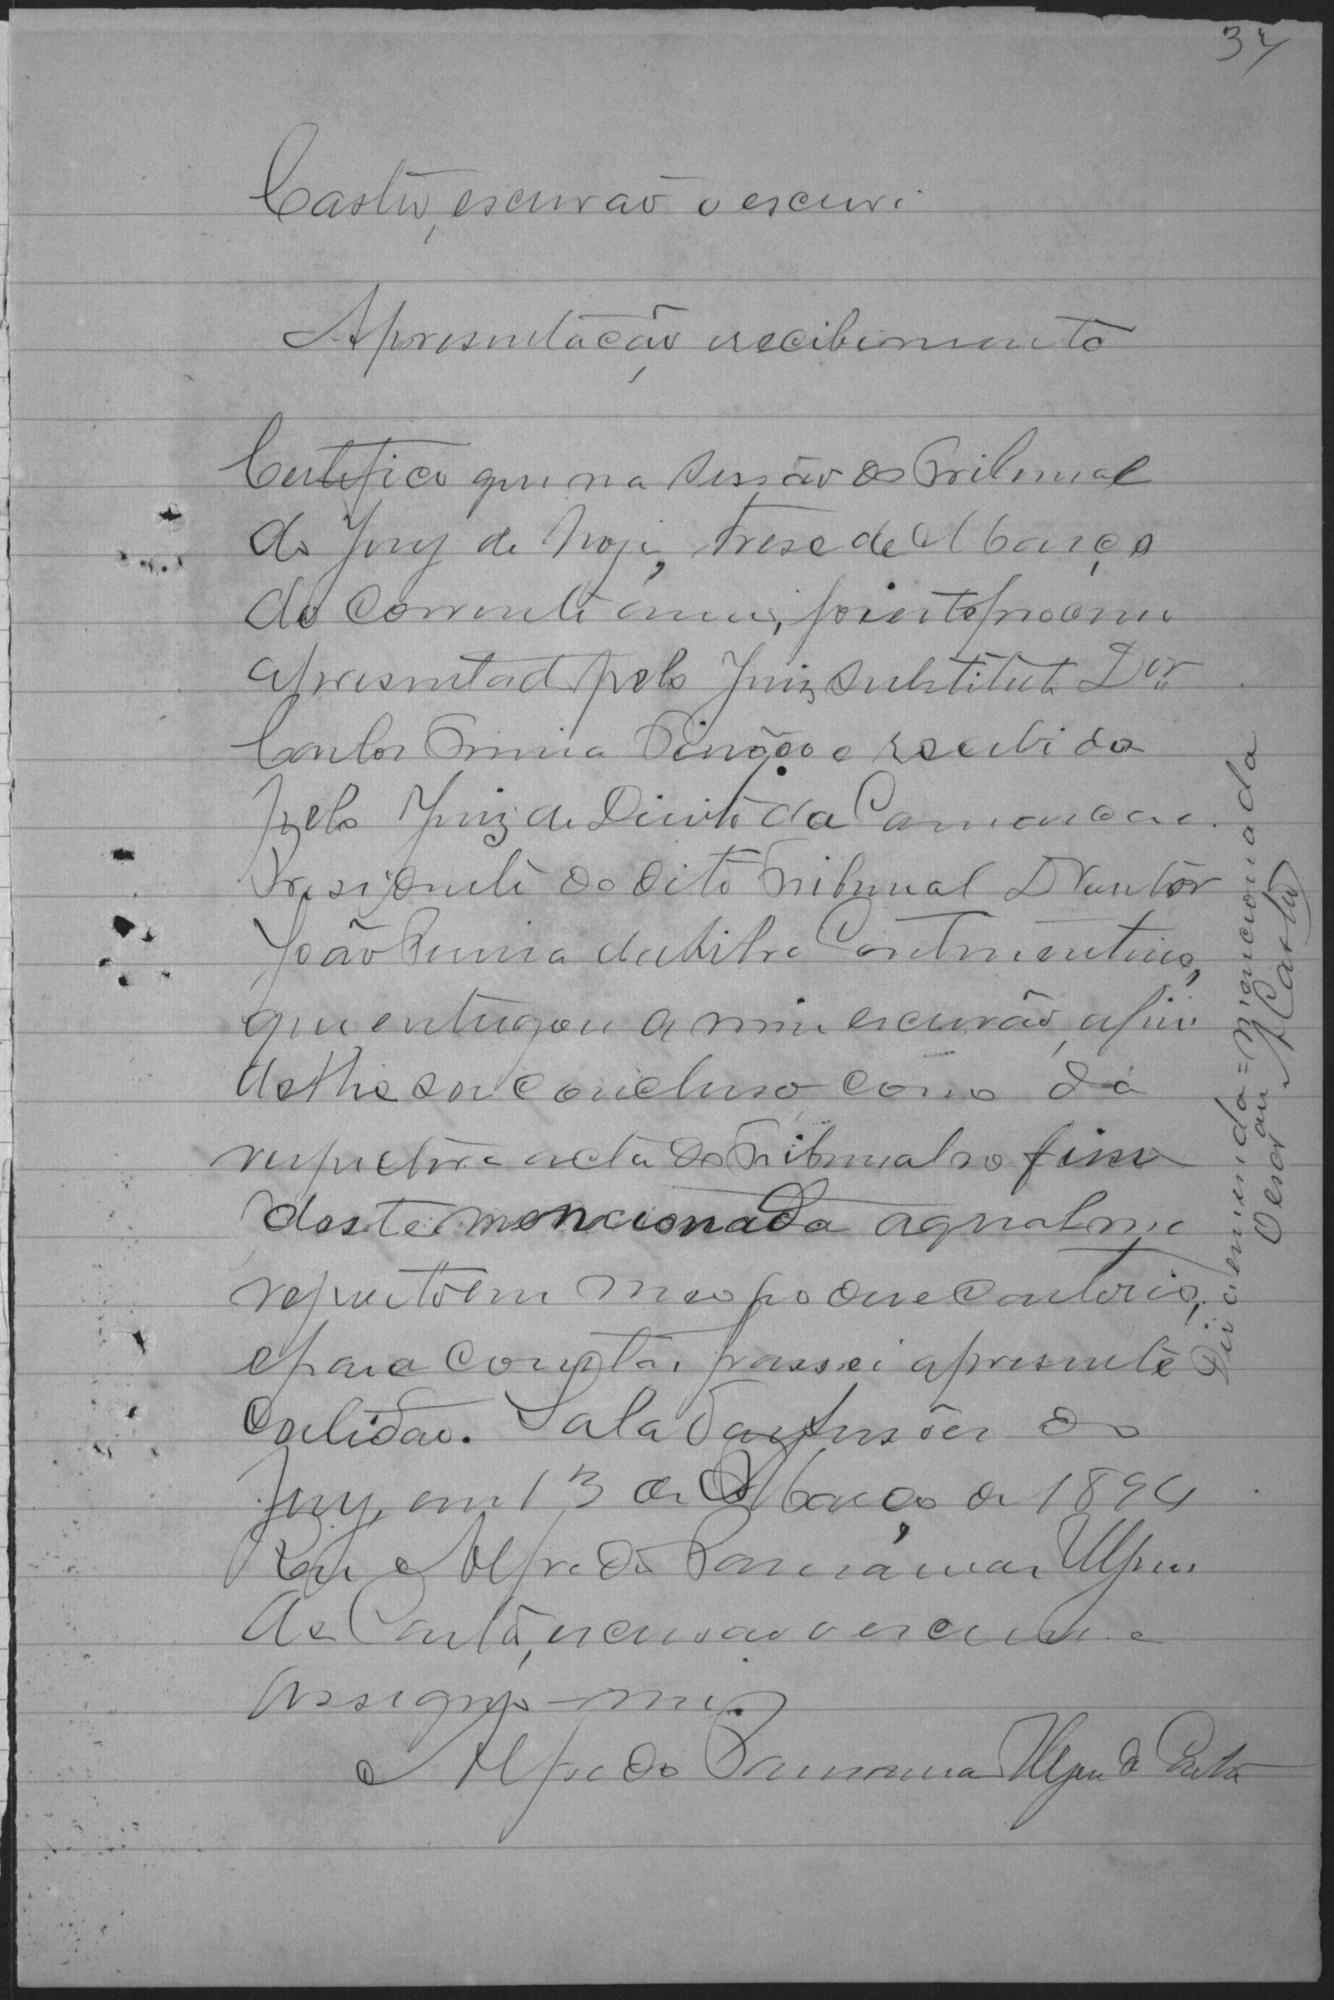 37
Castro, escrivão o escrevi
Apresentação e recebimento
Certifico que na sessão do Tribunal
do Jury de hoje, trese de Março
do corrente anno, foi este processo
apresentado pelo Juiz substituto Dor
Carlos e recebido
pelo Juiz de Direito da Comarca e
Presidente do dito Tribunal Doutor
João da Silva
que entregou a mim escrivão, afim
de lhe ser concluso como da
respectiva acta do Tribunal no fim
deste mencionada a qual me
reporto em meo poder e cartorio,
e para constar passei a presente
certidão. Sala das sessões do
Jury, em 13 de Março de 1894
Eu Alfredo
de Castro, escrivão o escrevi e
assigno-me.
Alfredo de Castro
Diz a emenda = mencionada
O escrivão Castro